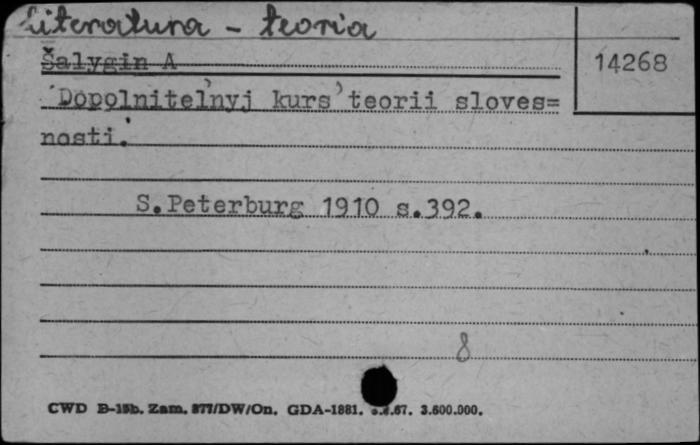 Literatura - teoria
Šalygin A
14268
Dopolnitel'nyj kurs' teorii sloves=
nosti.
S.Peterburg 1910 s.392.
8
CWD B-15b. Zam. 877/DW/On. GDA-1881. 67. 3.600.000.